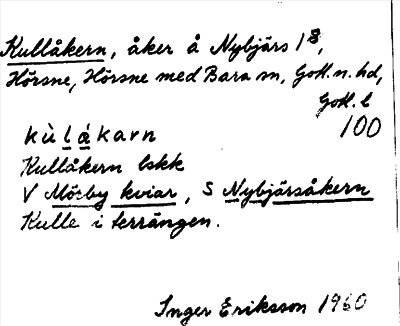 Kullåkern, åker å Nybjärs 1 8,
Hörsne, Hörsne med Bara sn, Gotl. n. hd,
Gotl. l
100
kù l á karn
Kullåkern bskk
V Mörby kviar, S Nybjärsåkern
Kulle i terrängen.
Inger Eriksson 1960